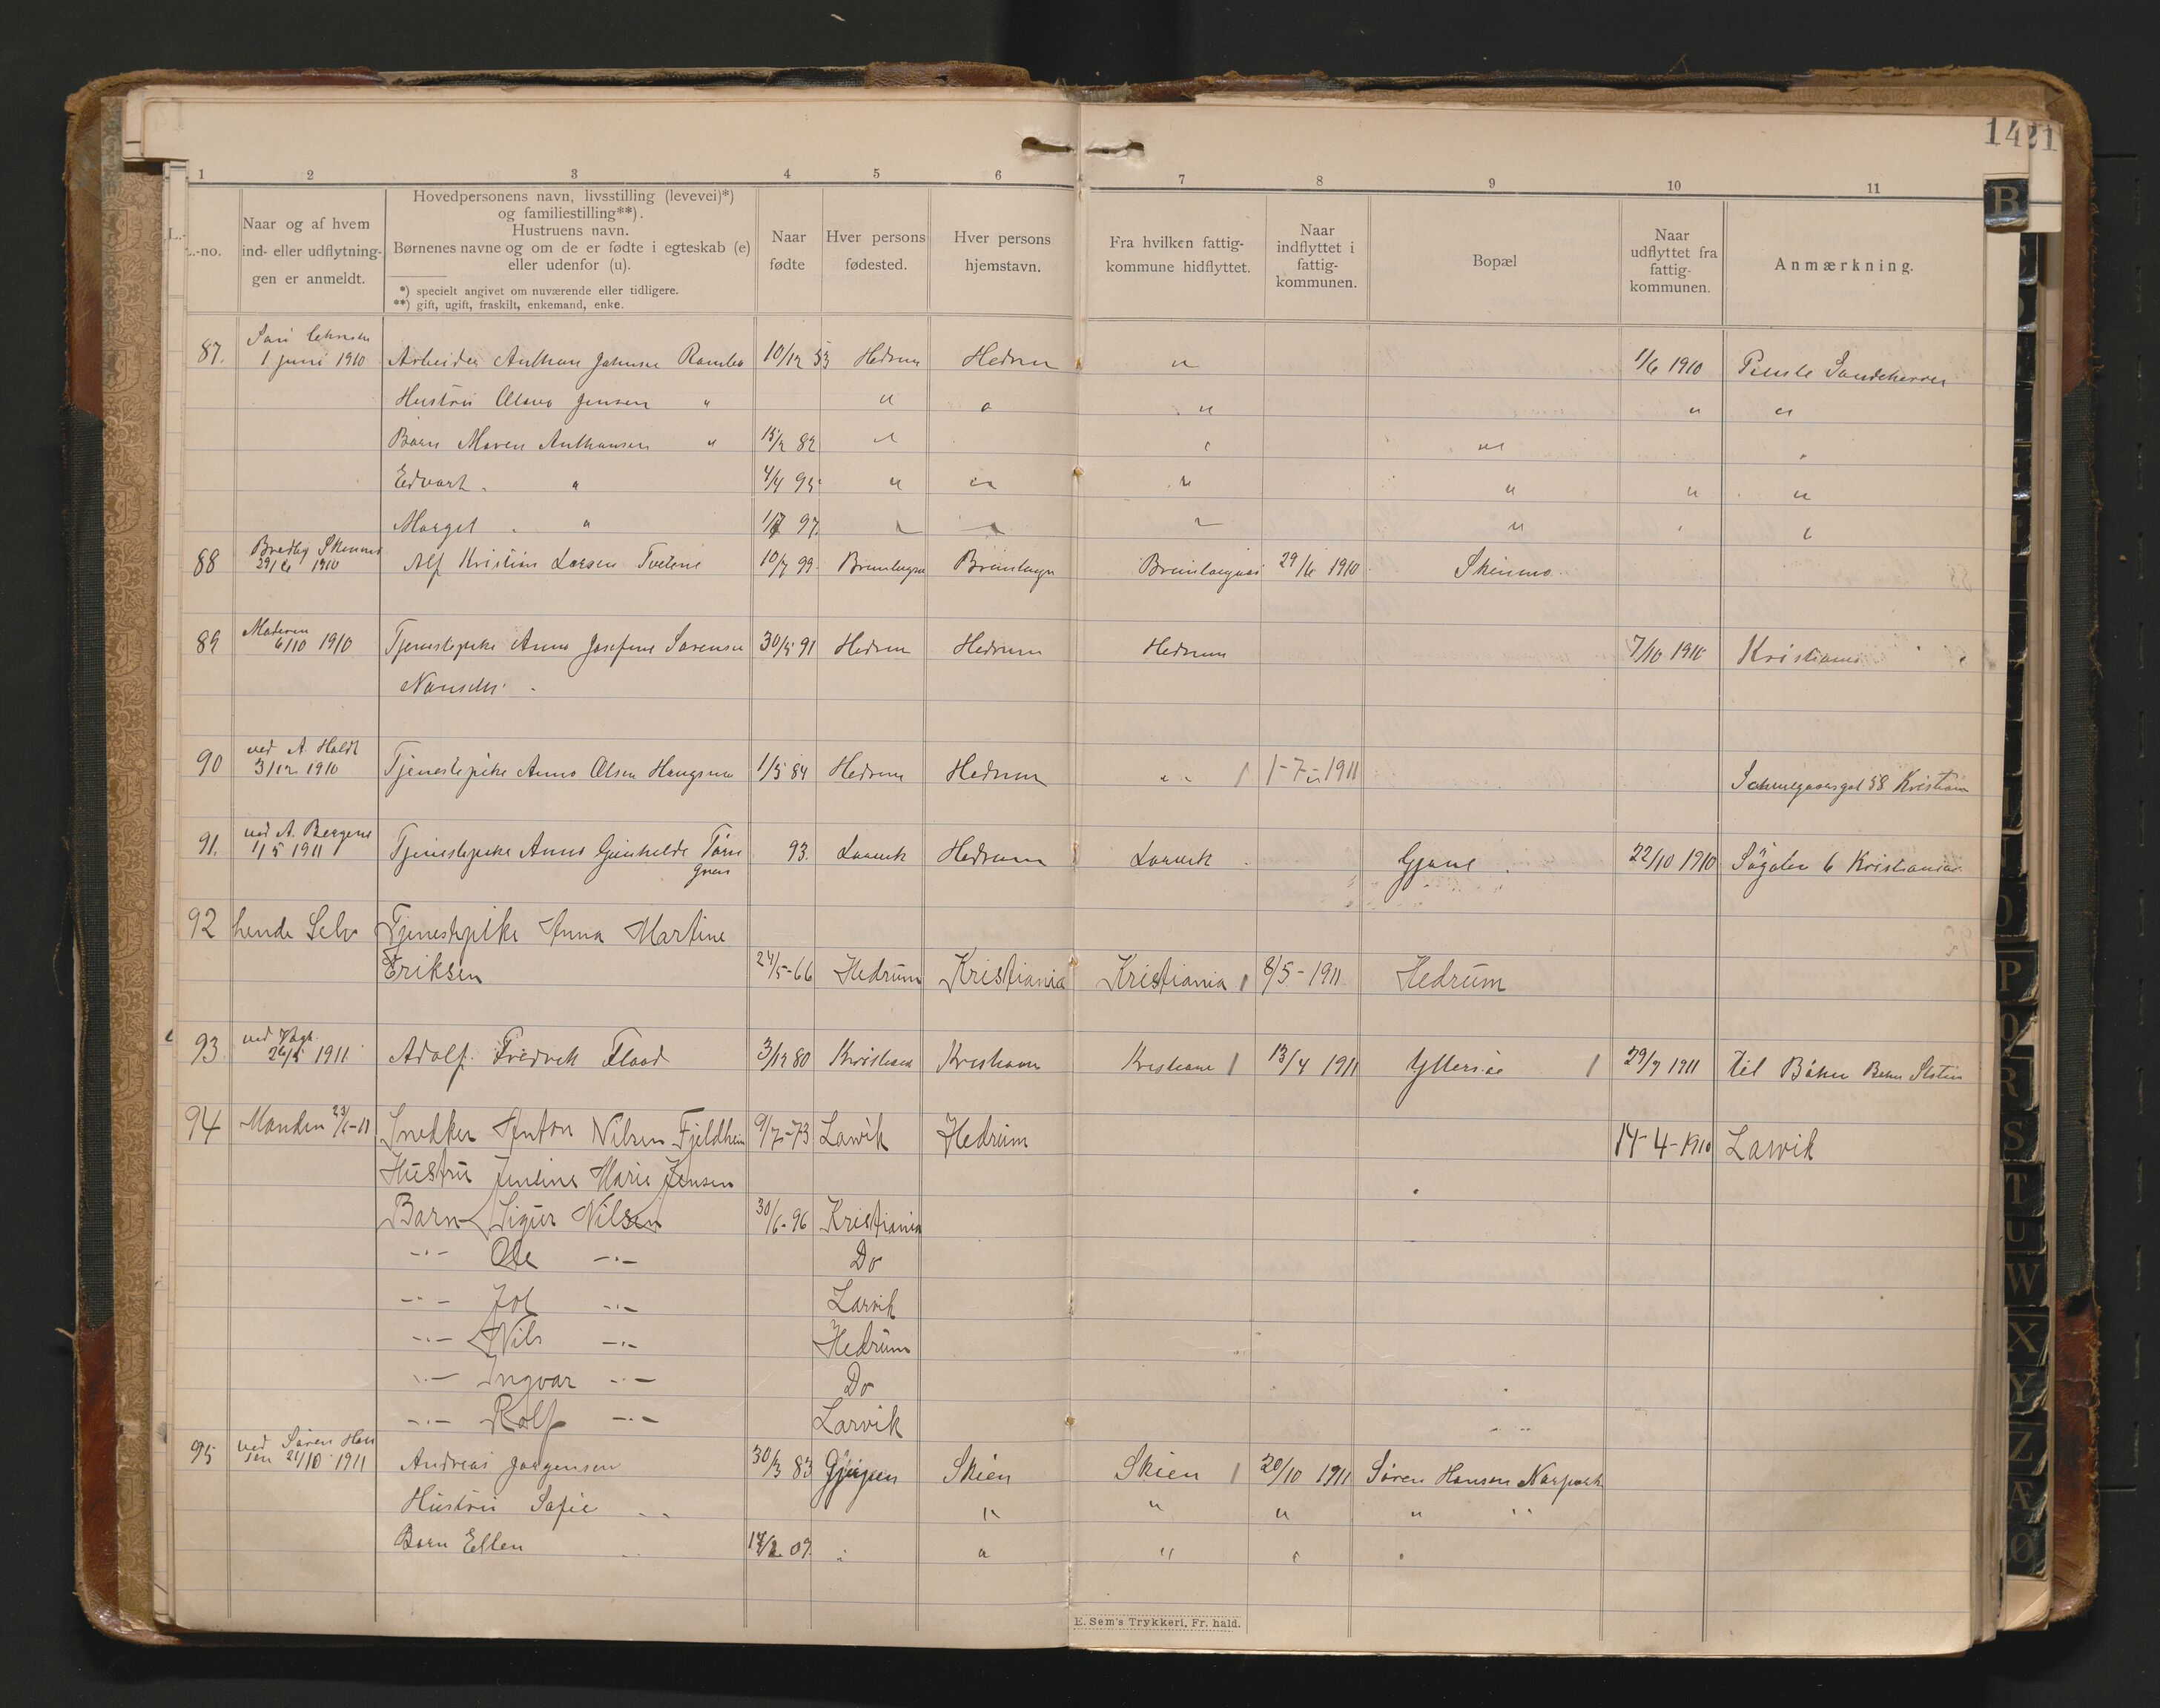 1421
1 2 3 4 5 6 7 8 9 10 11
L.-no.
Naar og af hvem ind- eller udflytningen er anmeldt.
Hovedpersonens navn, livsstilling (levevei)*)
og familiestilling**).
Hustruens navn.
Børnenes navne og om de er fødte i egteskab (e)
eller udenfor (u).
*) specielt angivet om nuværende eller tidligere.
**) gift, ugift, fraskilt, enkemand, enke.
Naar fødte
Hver persons fødested.
Hver persons hjemstavn.
Fra hvilken fattig-kommune hidflyttet.
Naar indflyttet i fattig-kommunen.
Bopæl
Naar udflyttet fra fattig-kommunen.
Anmærkning.
87. 1 juni 1910 Arbeider Anthon Johnsen 10/12 53 Hedrum Hedrum " 1/6 1910 Sandeherred
Hustru Jensen " " " " " "
Barn Maren Anthonsen " 15/2 82 " " "
Edvart " " 4/4 95 " " " " " "
Marget " " 1/7 97 " " " " "
88 29/6 1910 Alf Kristian Larsen Tvetene 10/7 99 Brunlagnæs 29/6 1910 Skinmo
89 Moderen 6/10 1910 Tjenestepike Anna Josefine Sørensen 30/5 91 Hedrum Hedrum Hedrum 7/10 1910 Kristiania
Nanseth
90 ved A. Holdt 3/12 1910 Tjenestepike Anna Olsen 1/5 84 Hedrum Hedrum " " 1-7-1911 58 Kristiania
91. ved A. Bergene 1/5 1911 Tjenestepike Anna 93. Larvik Hedrum Larvik Gjone 22/10 1910 6 Kristiania
92 hende Selv Tjenestepike Anna Martine
Eriksen 24/5-66 Hedrum Kristiania Kristiania 8/5-1911 Hedrum
93 26/5 1911 Adolf Fredrik Flood 3/12 80 Kristiania Kristiania Kristiania 13/4 1911 29/7 1911 til
94 Manden Snedker Anton Nilsen Fjeldheim 9/7-73 Larvik Hedrum 14-4-1910 Larvik
Hustru Jensine Marie Jensen
Barn Sigur Nilsen 30/6-96 Kristiania
-"- Ole -"- Do
-"- -"- Larvik
-"- Nils -"- Hedrum
-"- Ingvar -"- Do
-"- Rolf -"- Larvik
95 ved Søren Hansen 21/10 1911 Andreas Jørgensen 30/3 83 Gjerpen Skien Skien 20/10 1911 Søren Hansen
Hustru Sofie " " " " " "
Barn Ellen " " " "
E. Sem's Trykkeri, Fr. hald.
B
O
P
Q
R
S
T
U
W
X
Y
Z
Æ
Ø